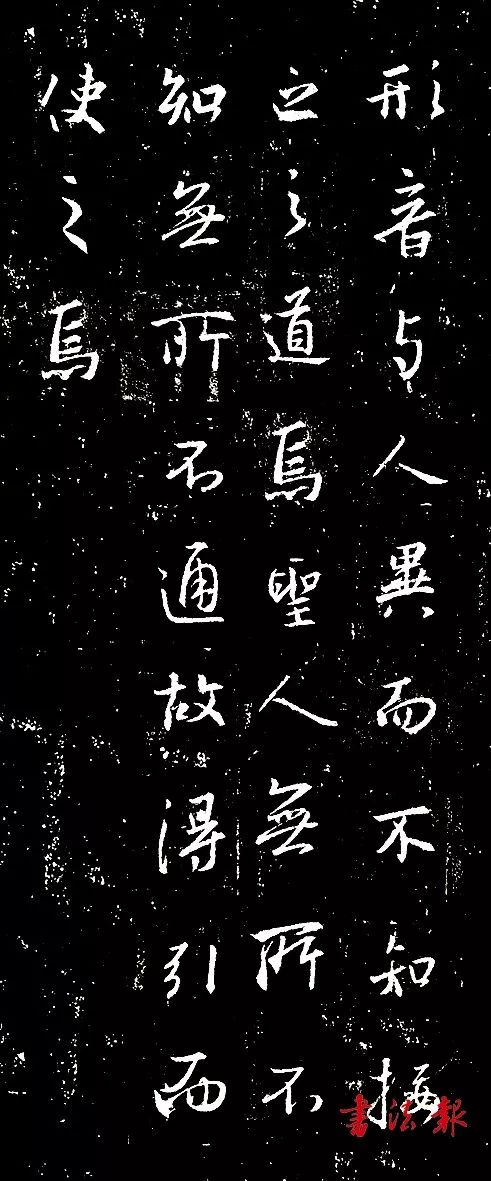 形音与人異而不知接
之之道焉聖人無所不
知無所不通故得引而
使之焉
書法報